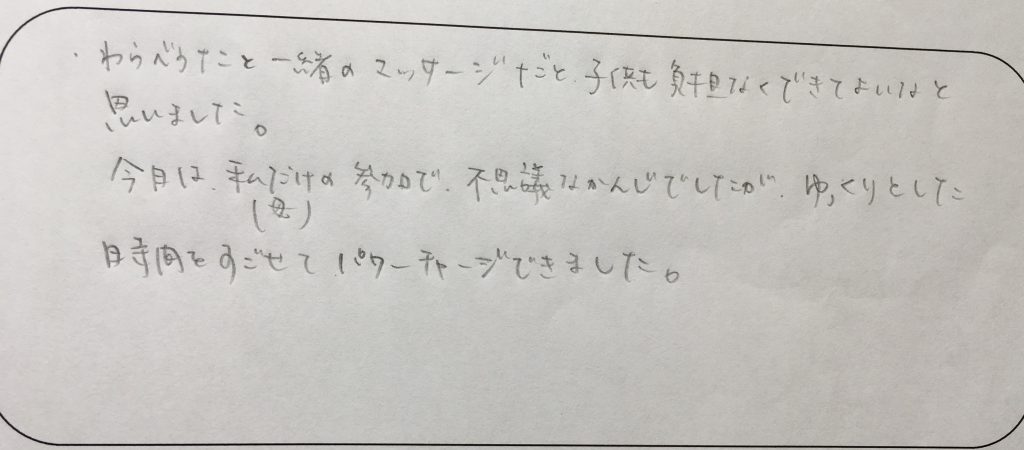 ・わらべうたこと一緒のマッサージだと、子供も負担なくできてよいなと
思いました。
今日は、私だけの参加で、不思議なかんじでしたが、ゆっくりとした
(母)
時間をすごせてパワーチャージできました。